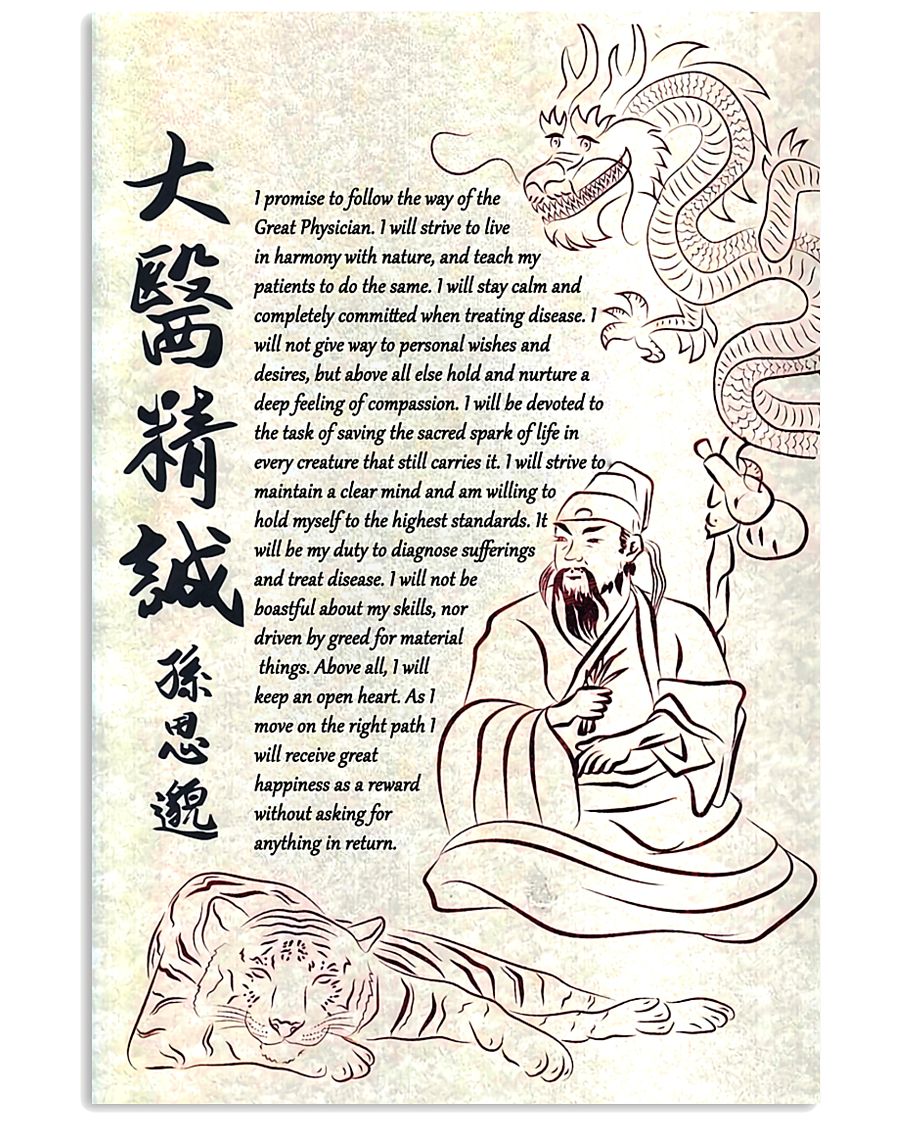 大醫精誠
孫思邈
I promise to follow the way of the
Great Physician. I will strive to live
in harmony with nature, and teach my
patients to do the same. I will stay calm and
completely committed when treating disease. I
will not give way to personal wishes and
desires, but above all else hold and nurture a
deep feeling of compassion. I will be devoted to
the task of saving the sacred spark of life in
every creature that still carries it. I will strive to
maintain a clear mind and am willing to
hold myself to the highest standards. It
will be my duty to diagnose sufferings
and treat disease. I will not be
boastful about my skills, nor
driven by greed for material
things. Above all, I will
keep an open heart. As I
move on the right path I
will receive great
happiness as a reward
without asking for
anything in return.